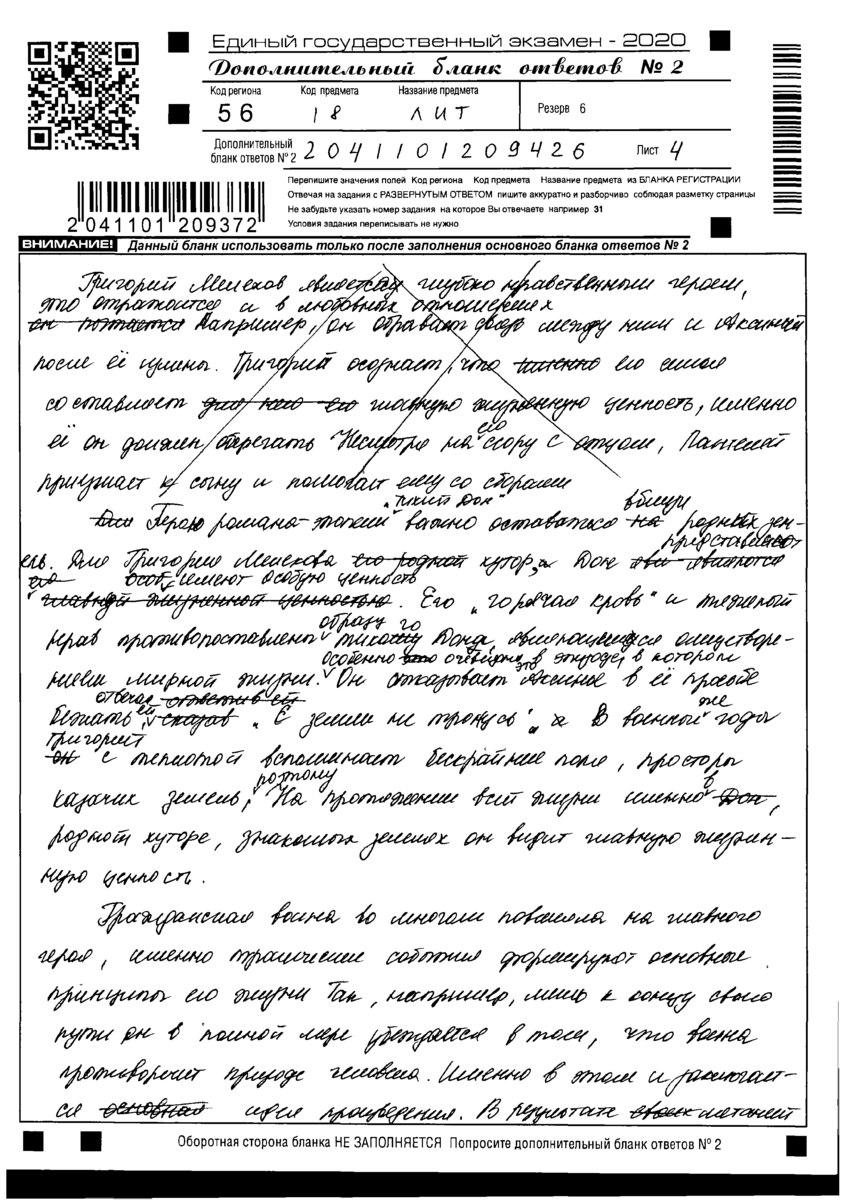 Единый государственный экзамен - 2020
Дополнительный бланк ответов № 2
Код региона Код предмета Название предмета
56 18 ЛИТ
Резерв 6
Дополнительный бланк ответов № 2 2041101209426 Лист 4
Перепишите значения полей Код региона Код предмета Название предмета из БЛАНКА РЕГИСТРАЦИИ
Отвечая на задания с РАЗВЕРНУТЫМ ОТВЕТОМ пишите аккуратно и разборчиво соблюдая разметку страницы
Не забудьте указать номер задания на которое Вы отвечаете например 31
Условия задания переписывать не нужно
2041101 209372
ВНИМАНИЕ! Данный бланк использовать только после заполнения основного бланка ответов № 2
Григорий Мелехов является глубоко нравственным героем,
это отражается и в любовных отношениях
он пытается Например, он обрывает связь между ним и Аксиньей
после её измены. Григорий осознает, что именно его семья
составляет для него его главную жизненную ценность, именно
её он должен оберегать Несмотря на его ссору с отцом, Пантелей
приезжает к сыну и помогает ему со сборами
"Тихий Дон" вблизи
Для Герою романа-эпопеи важно оставаться на родных зем-
представляют
ель. Для Григория Мелехова его родной хутор, и Дон
его особ, имеют особую ценность
главной жизненной ценностью. Его "горячая кровь" и тяжелый
образу го
нрав противопоставлены тихому Дона, являющемуся олицетворе-
особенно это очевидно в эпизоде, в котором
нием мирной жизни. Он отказывает Аксинье в её просьбе
отвечая ей ответив ей же
бежать, сказав "С земли не тронусь", а В военные годы
Григорий
он с теплотой вспоминает бескрайние поля, просторы
поэтому в
казачих земель, На протяжении всей жизни именно Дон,
родном хуторе, знакомых землях он видит главную жизнен-
ную ценность.
Гражданская война во многом повлияла на главного
героя, именно трагические события формируют основные
принципы его жизни Так, например, лишь к концу своего
пути он в полной мере убеждается в том, что война
противоречит природе человека. Именно в этом и заключает-
ся основная идея произведения. В результате своих метаний
Оборотная сторона бланка НЕ ЗАПОЛНЯЕТСЯ Попросите дополнительный бланк ответов № 2